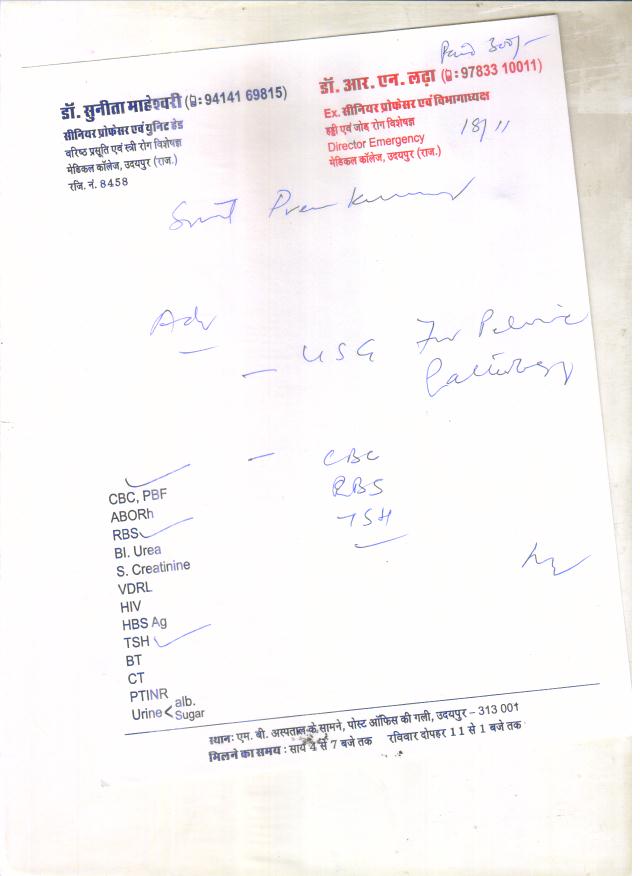 Paid 300/-
डॉ. सुनीता माहेश्वरी (📱: 94141 69815)
सीनियर प्रोफेसर एवं यूनिट हेड
वरिष्ठ प्रसूति एवं स्त्री रोग विशेषज्ञ
मेडिकल कॉलेज, उदयपुर (राज.)
रजि. नं. 8458
डॉ. आर. एन. लढ़ा (📱: 97833 10011)
Ex. सीनियर प्रोफेसर एवं विभागाध्यक्ष
हड्डी एवं जोड़ रोग विशेषज्ञ
Director Emergency
मेडिकल कॉलेज, उदयपुर (राज.)
18/11
Smt Prem Kumari
Adv
- USG For Pelvic
Pathology
- CBC
RBS
TSH
CBC, PBF
ABORh
RBS
Bl. Urea
S. Creatinine
VDRL
HIV
HBS Ag
TSH
BT
CT
PTINR
Urine < alb.
Sugar
स्थान: एम. बी. अस्पताल के सामने, पोस्ट ऑफिस की गली, उदयपुर - 313 001
मिलने का समय : सायं 4 से 7 बजे तक रविवार दोपहर 11 से 1 बजे तक